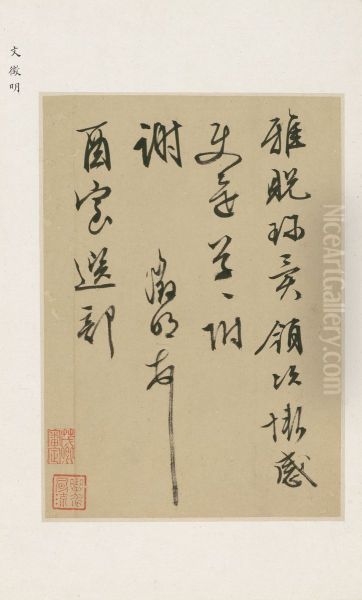 文徵明
雅貺珍異領次慚感
使還草草附
謝
徵明頓首
酉室選部
NiceArtGallery.com